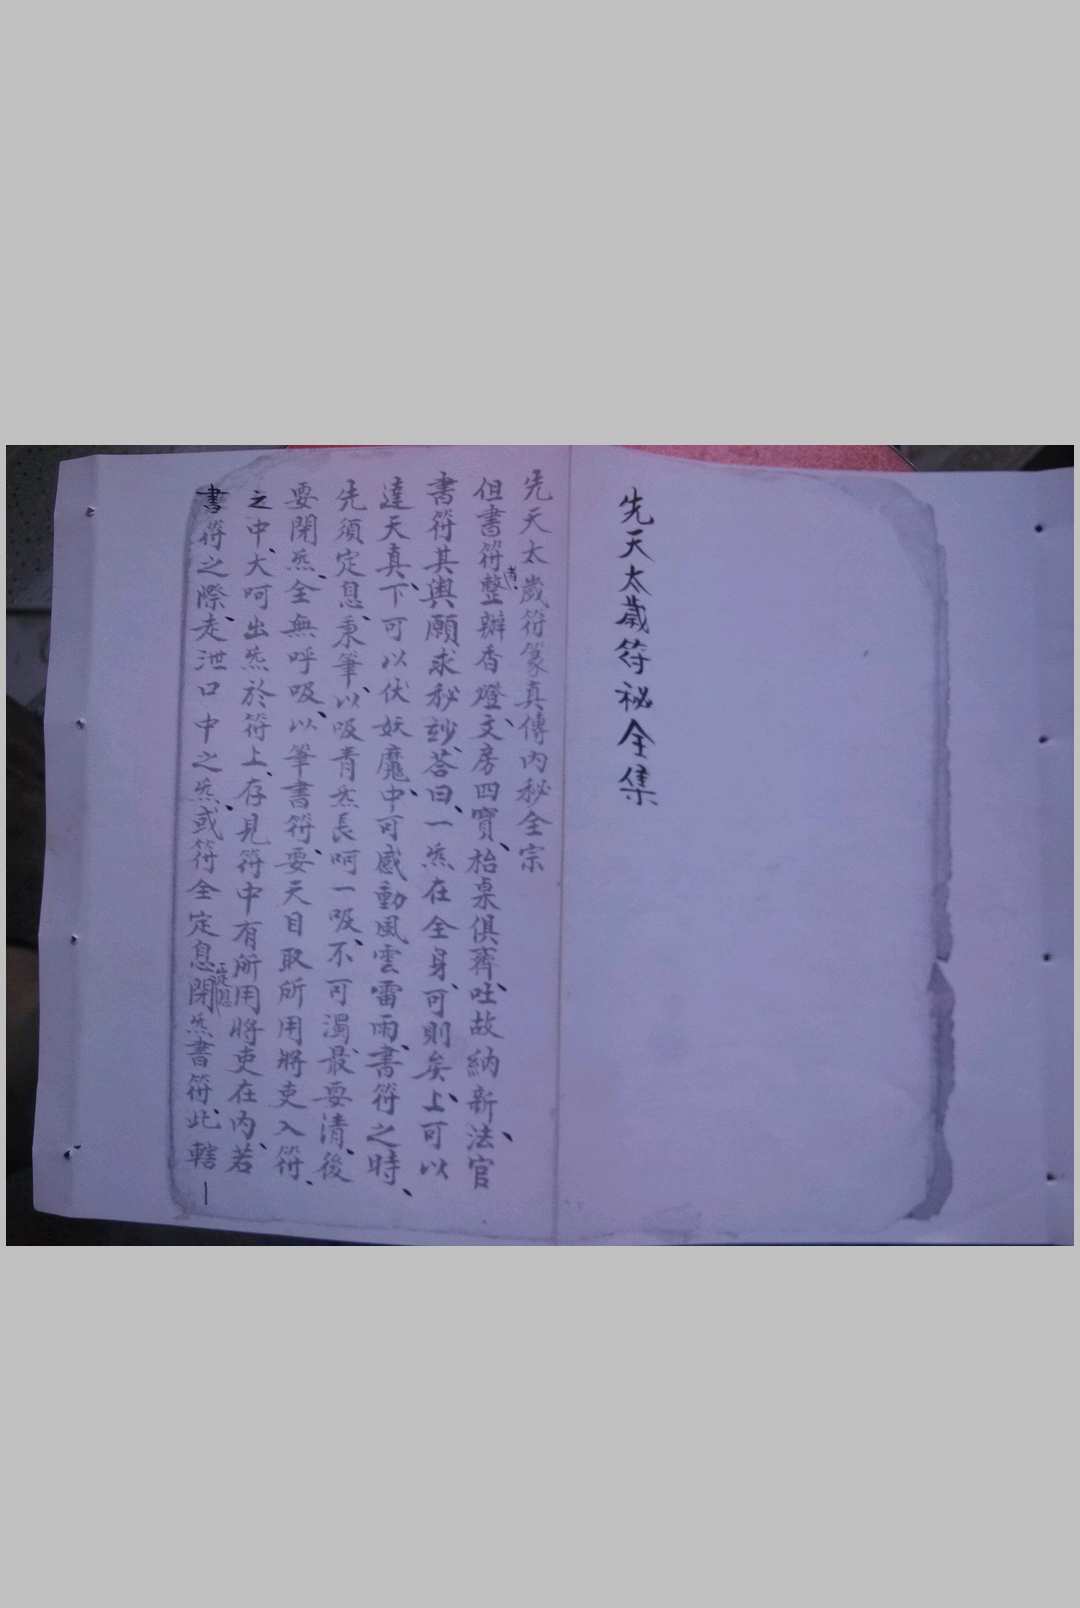 先天太歲符秘全集
先天太歲符篆真傳內秘全宗
但書符者、整辦香燈、文房四寶、枱桌俱齊、吐故納新、法官
書符其輿願求秘玅、荅曰、一炁在全身、可則矣、上可以
達天真、下可以伏妖魔、中可感動風雲雷雨、書符之時、
先須定息、秉筆、以吸青炁長呵一吸、不可濁、最要清、後
要閉炁、全無呼吸、以筆書符、要天目取所用將吏入符、
之中、大呵出炁於符上、存見符中有所用將吏在內、若
書符之際、走泄口中之炁、或符全定息閉炁書符、此轄